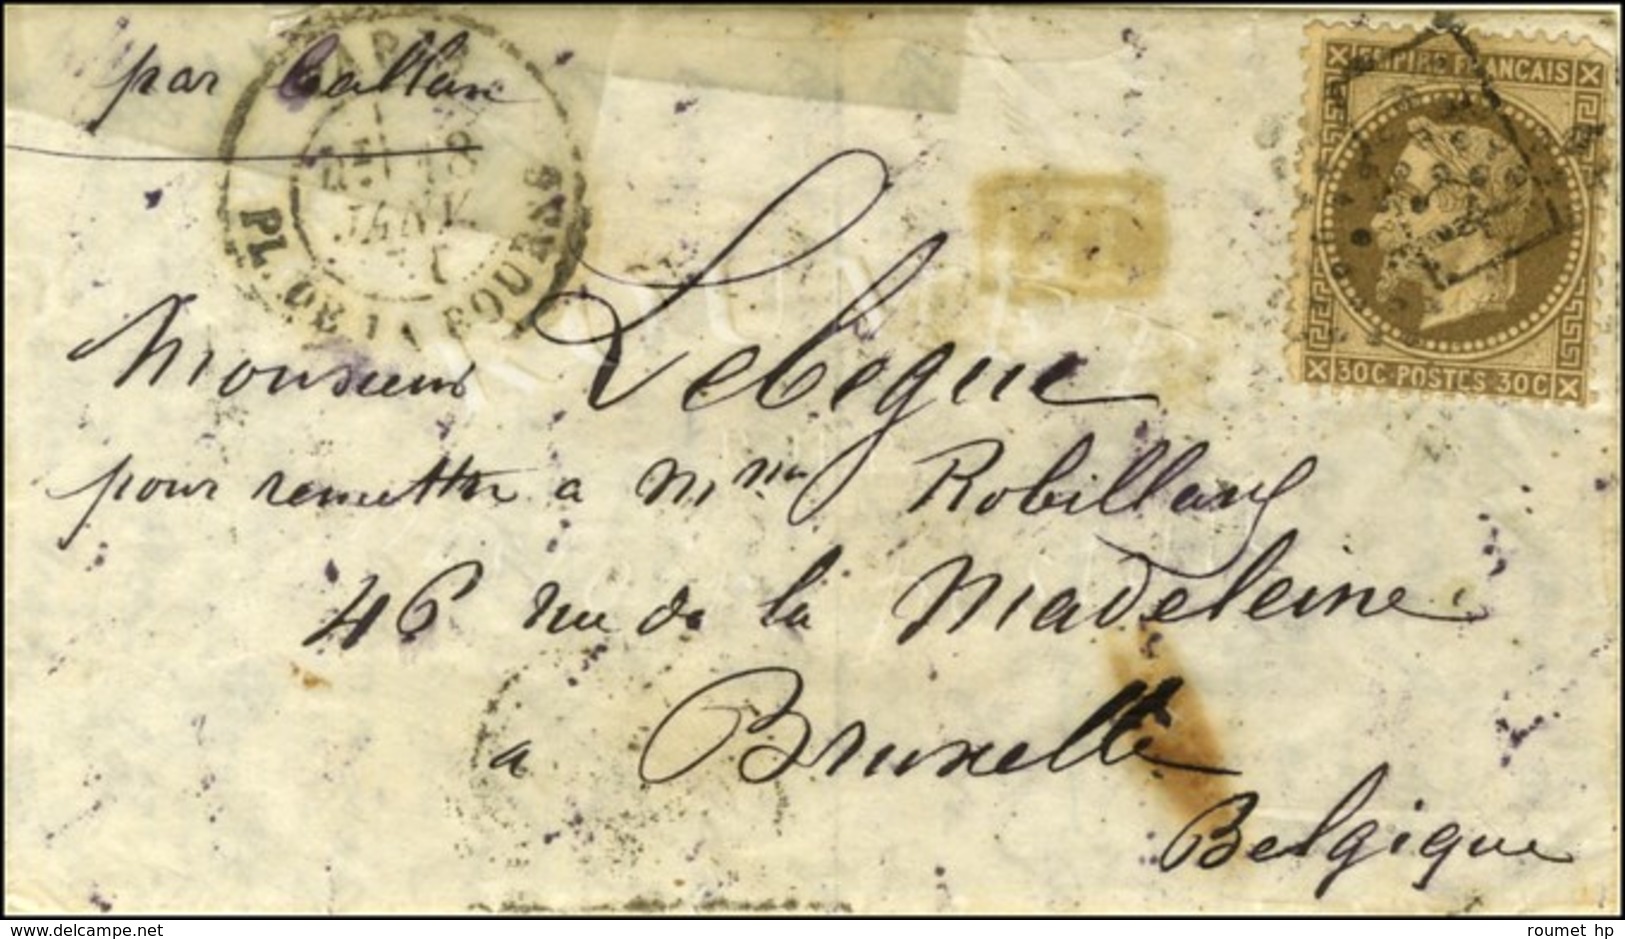 par Ballon
PARIS
18
JANV.
PL. DE LA BOURSE
PD
EMPIRE FRANCAIS
30C POSTES 30C
Monsieur Lebegue
pour remettre a Mme Robillard
46 rue de la Madeleine
a Bruxelle
Belgique
www.delcampe.net
roumet_hp